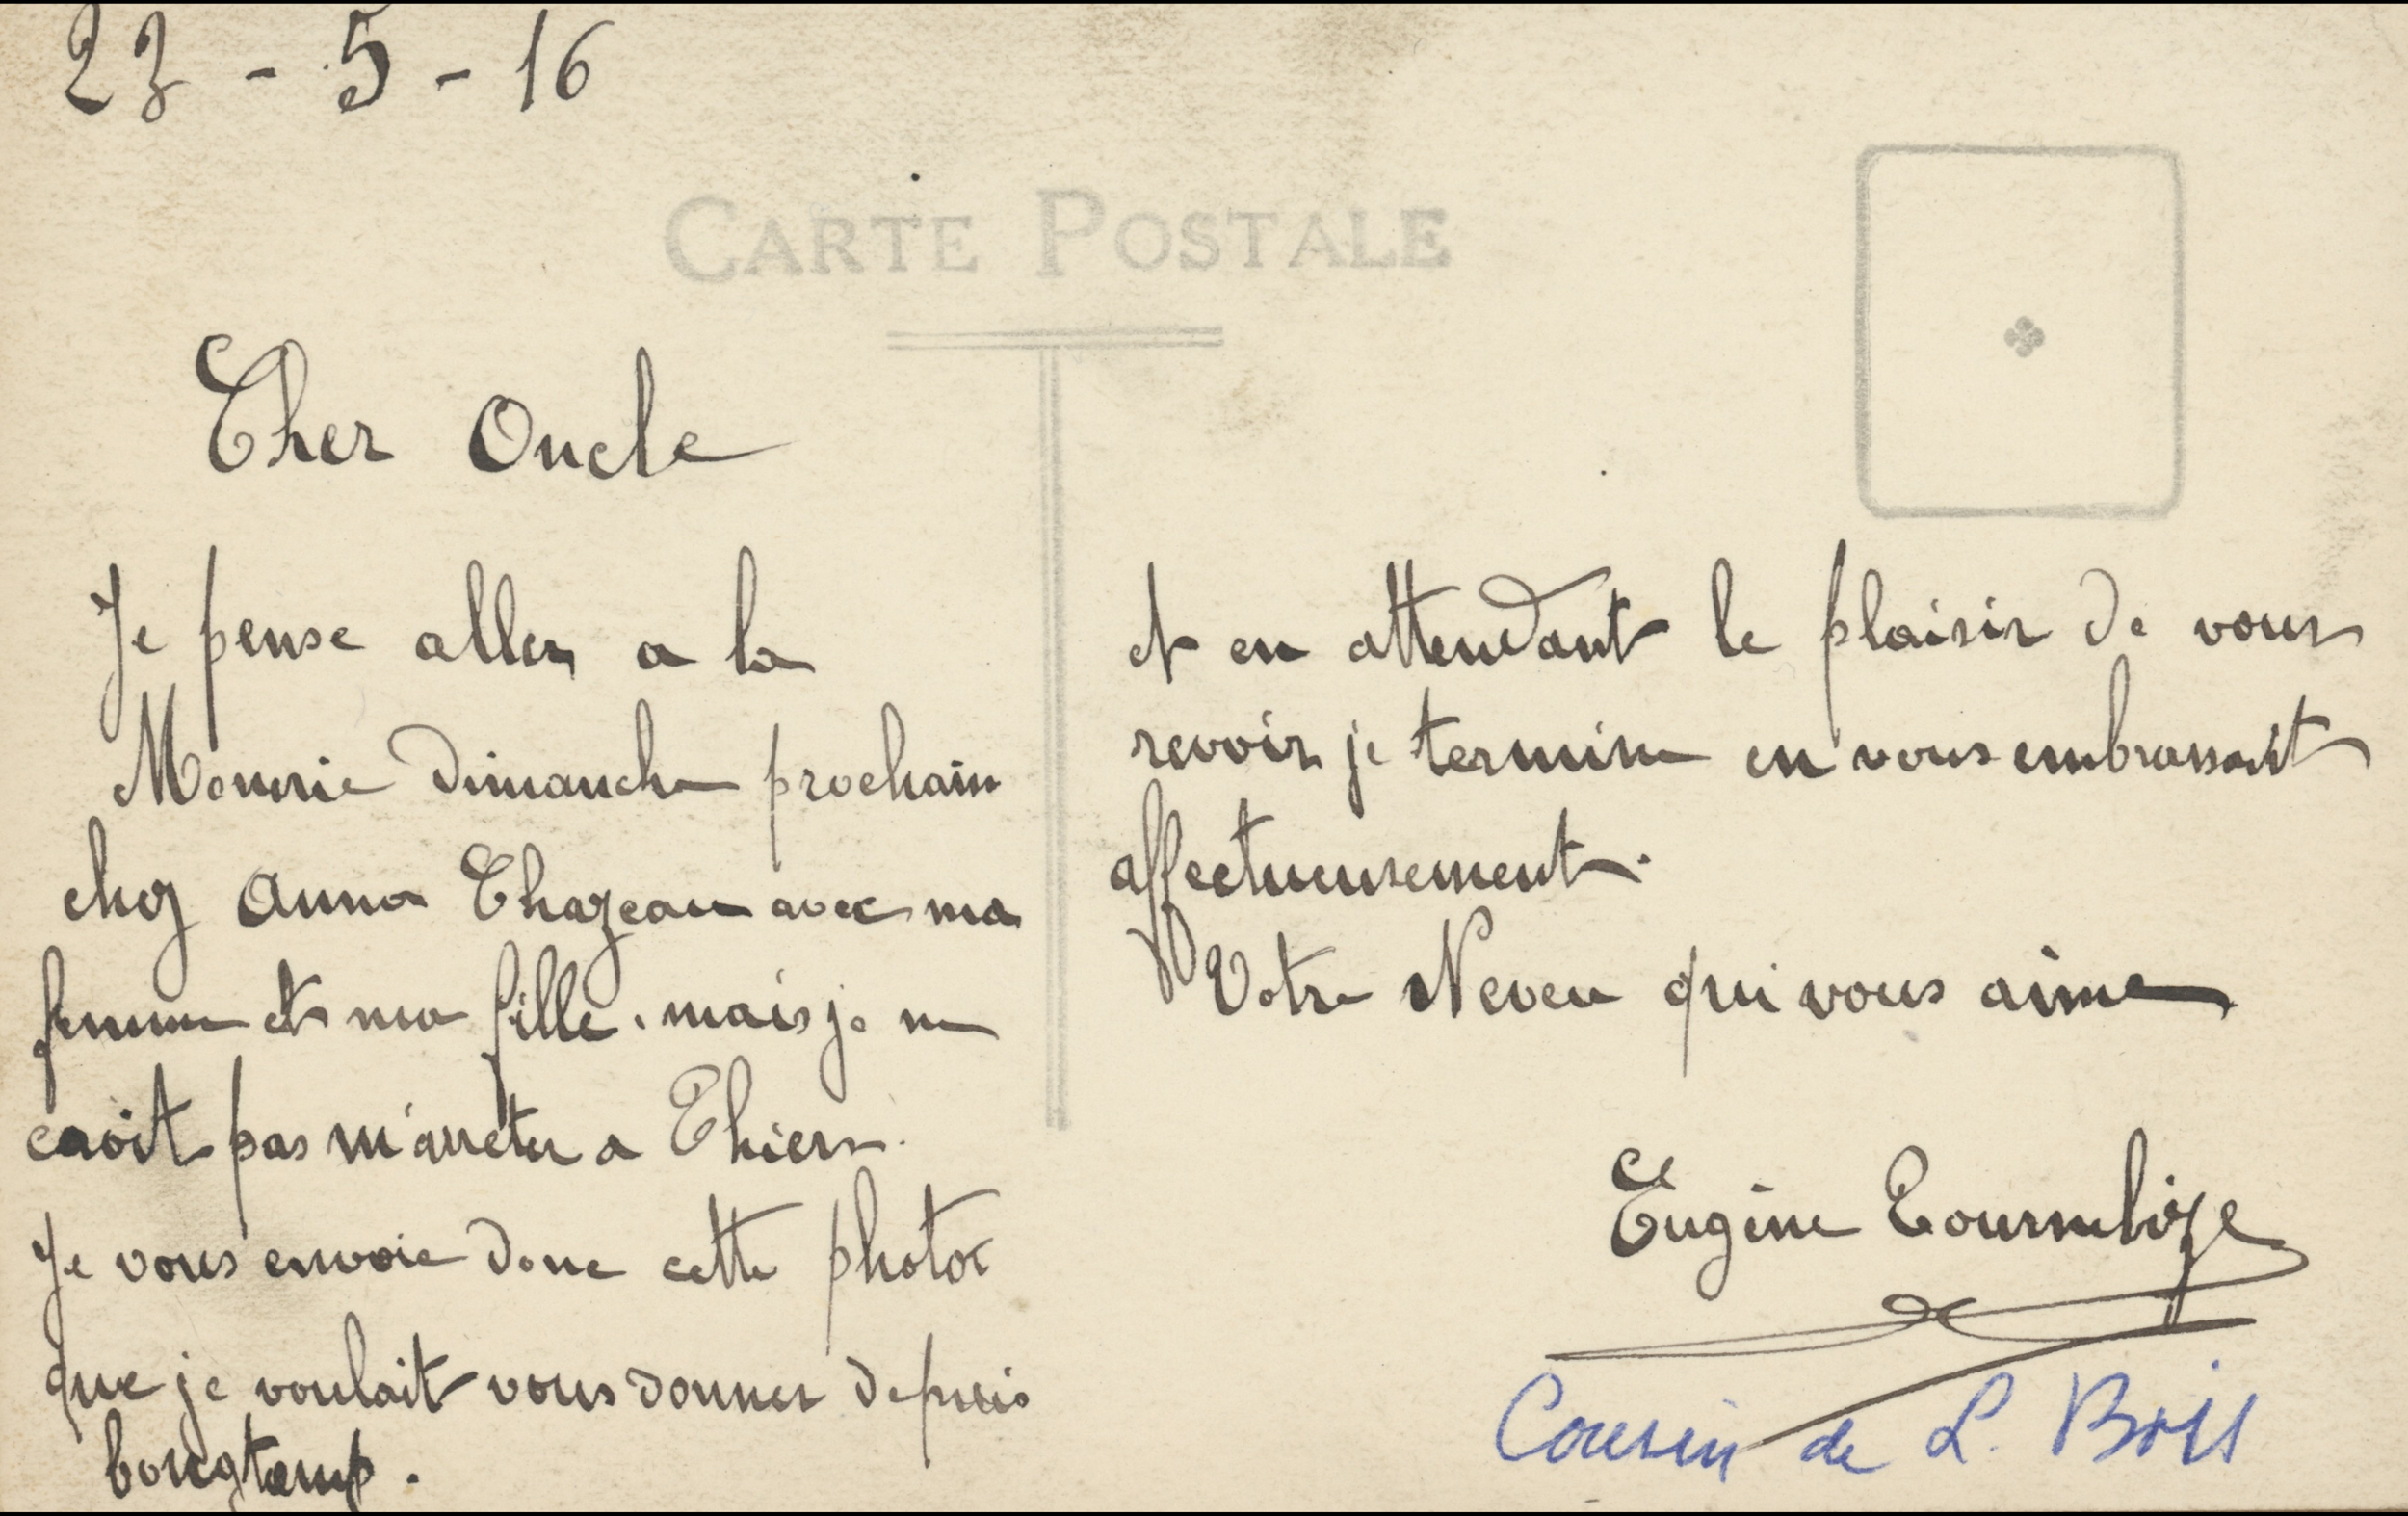 22 - 5 - 16
CARTE POSTALE
Cher Oncle
Je pense aller a la
Monerie dimanche prochain
chez Anna Chazeau avec ma
femme et ma fille. mais je ne
croit pas m'arreter a Thiers.
Je vous envoie donc cette photo
que je voulait vous donner depuis
longtemp.
et en attendant le plaisir de vous
revoir je termine en vous embrassant
affectueusement.
Votre Neveu qui vous aime
Eugène Tournebize
Cousin de L.